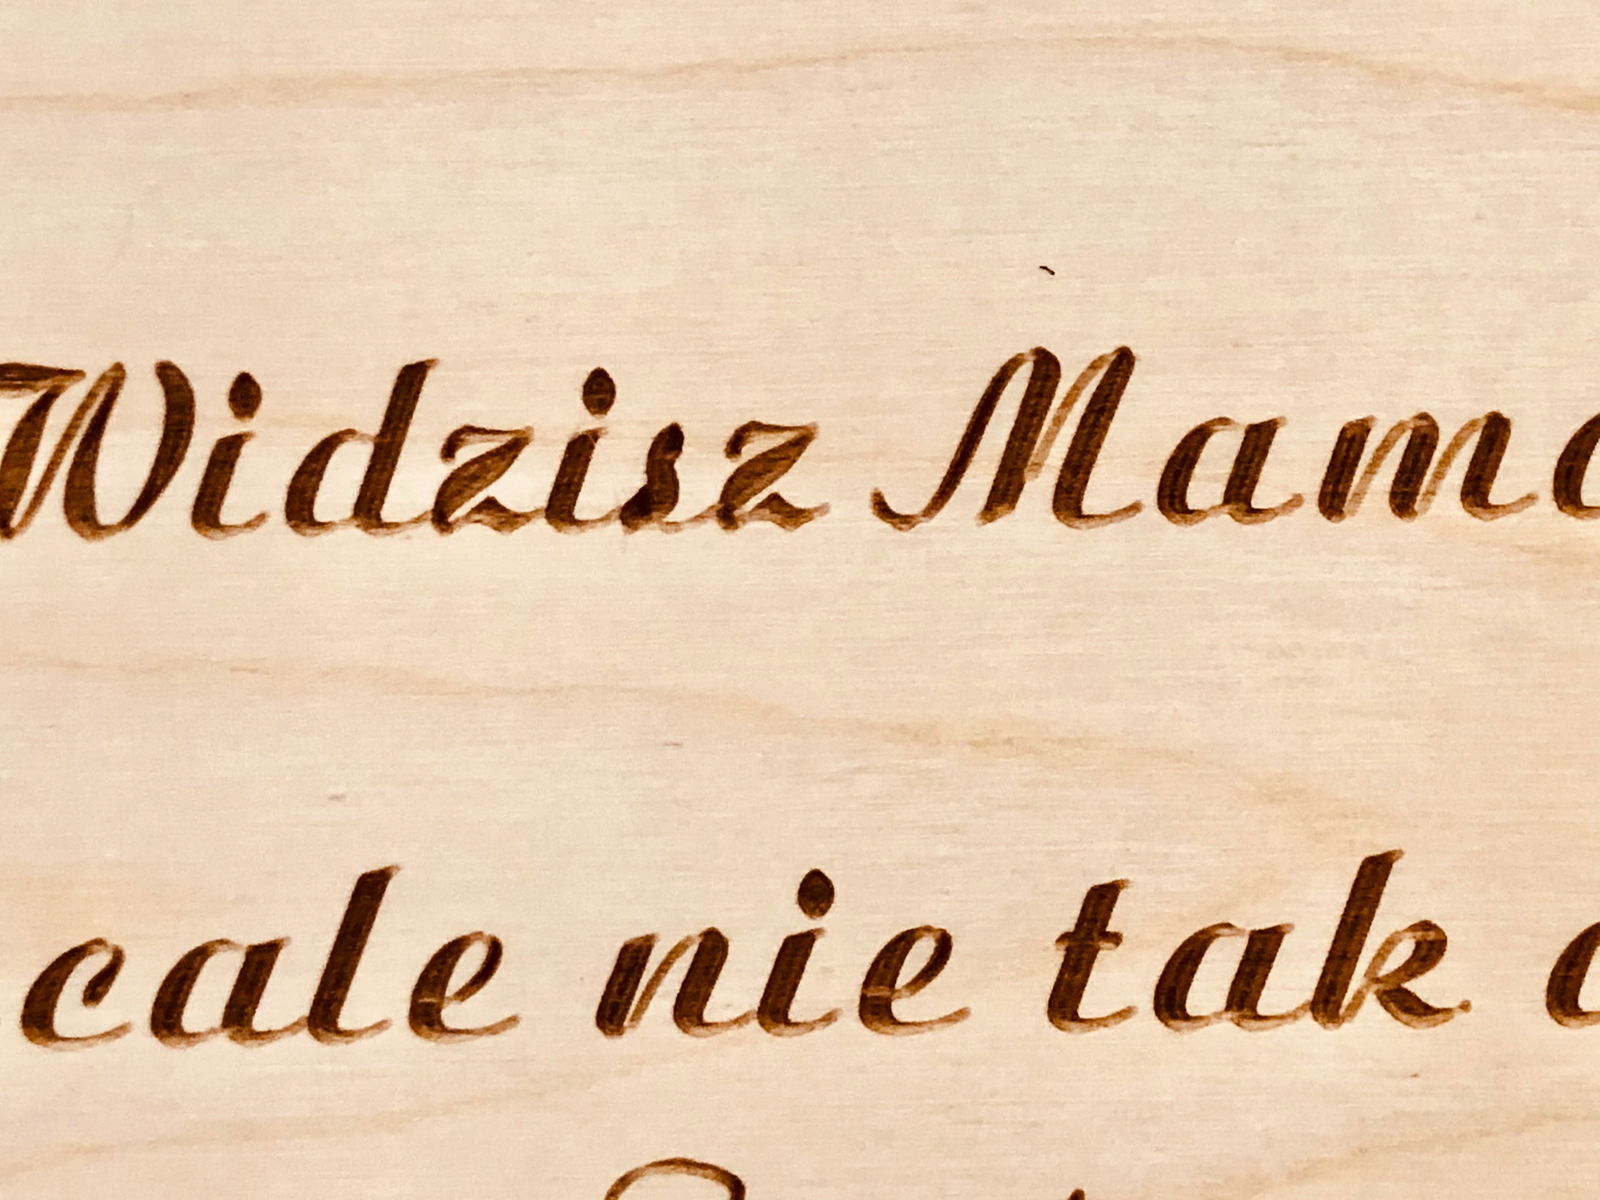 Widzisz Mam
cale nie tak